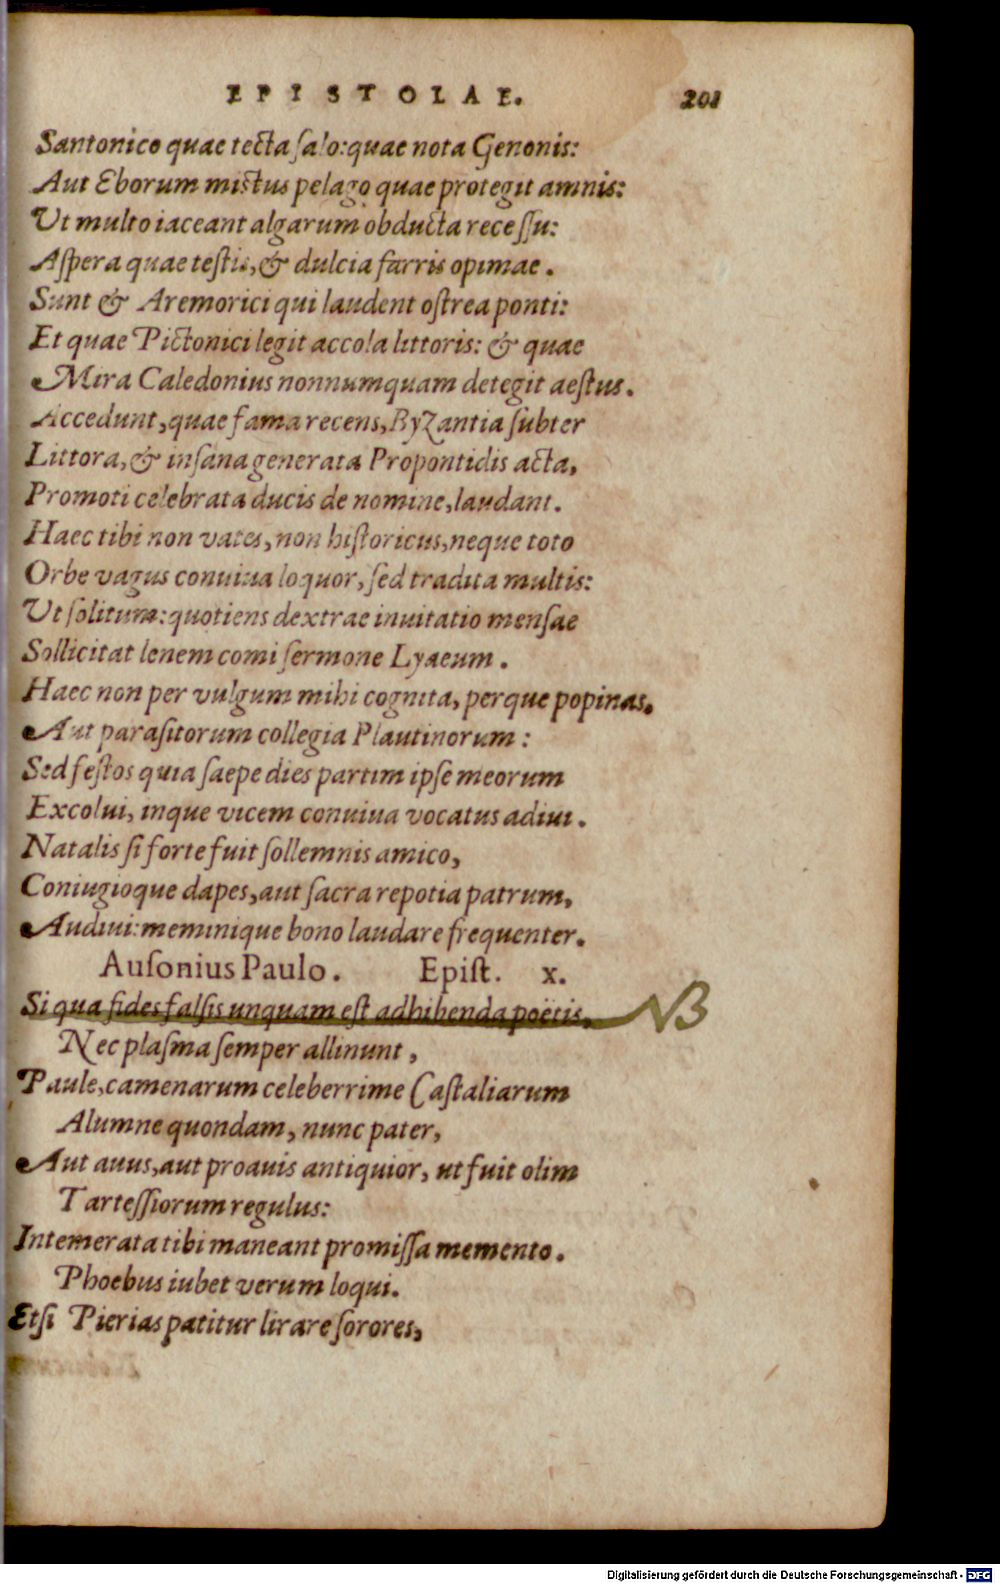 EPISTOLAE. 201
Santonico quae tecta salo: quae nota Genonis:
Aut Eborum mictus pelago quae protegit amnis:
Ut multo iaceant algarum obducta recessu:
Aspera quae testis, & dulcia farris opimae.
Sunt & Aremorici qui laudent ostrea ponti:
Et quae Pictonici legit accola littoris: & quae
Mira Caledonius nonnumquam detegit aestus.
Accedunt, quae fama recens, Byzantia subter
Littora, & insana generata Propontidis acta,
Promoti celebrata ducis de nomine, laudant.
Haec tibi non vates, non historicus, neque toto
Orbe vagus conuiua loquor, sed tradita multis:
Ut solitum: quotiens dextrae inuitatio mensae
Sollicitat lenem comi sermone Lyaeum.
Haec non per vulgum mihi cognita, perque popinas.
Aut parasitorum collegia Plautinorum:
Sed festos quia saepe dies partim ipse meorum
Excolui, inque vicem conuiua vocatus adiui.
Natalis si forte fuit sollemnis amico,
Coniugioque dapes, aut sacra repotia patrum,
Audiui: meminique bono laudare frequenter.
Ausonius Paulo. Epist. x.
Si qua fides falsis unquam est adhibenda poëtis, NB
Nec plasma semper allinunt,
Paule, camenarum celeberrime Castaliarum
Alumne quondam, nunc pater,
Aut auus, aut proauis antiquior, ut fuit olim
Tartessiorum regulus:
Intemerata tibi maneant promissa memento.
Phoebus iubet verum loqui.
Etsi Pierias patitur lirare sorores,
Digitalisierung gefördert durch die Deutsche Forschungsgemeinschaft - DFG